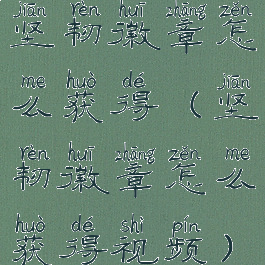 jiān rèn huī zhāng zěn
坚韧徽章怎
me huò dé jiān
么获得（坚
rèn huī zhāng zěn me
韧徽章怎么
huò dé shì pín
获得视频）